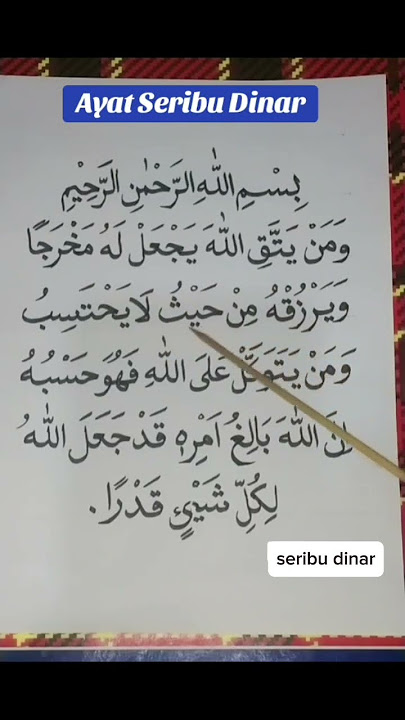 Ayat Seribu Dinar
بِسْمِ اللّٰهِ الرَّحْمٰنِ الرَّحِيْمِ
وَمَنْ يَتَّقِ اللّٰهَ يَجْعَلْ لَهُ مَخْرَجًا
وَيَرْزُقْهُ مِنْ حَيْثُ لَا يَحْتَسِبُ
وَمَنْ يَتَوَكَّلْ عَلَى اللّٰهِ فَهُوَ حَسْبُهُ
اِنَّ اللّٰهَ بَالِغُ اَمْرِهِ قَدْ جَعَلَ اللّٰهُ
لِكُلِّ شَيْئٍ قَدْرًا.
seribu dinar